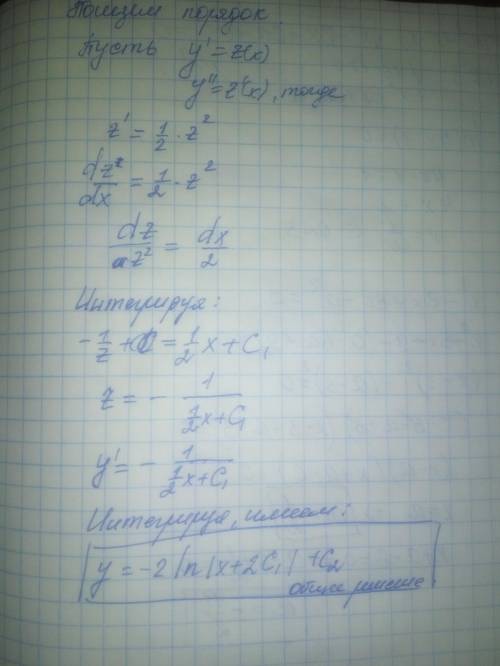 Понизим порядок.
Пусть y' = z(x)
y'' = z'(x), тогда
z' = 1/2 · z²
dz/dx = 1/2 · z²
dz/z² = dx/2
Интегрируя:
-1/z + = 1/2 x + C₁
z = - 1/(1/2 x + C₁)
y' = - 1/(1/2 x + C₁)
Интегрируя, имеем:
y = -2 ln|x + 2C₁| + C₂
общее решение